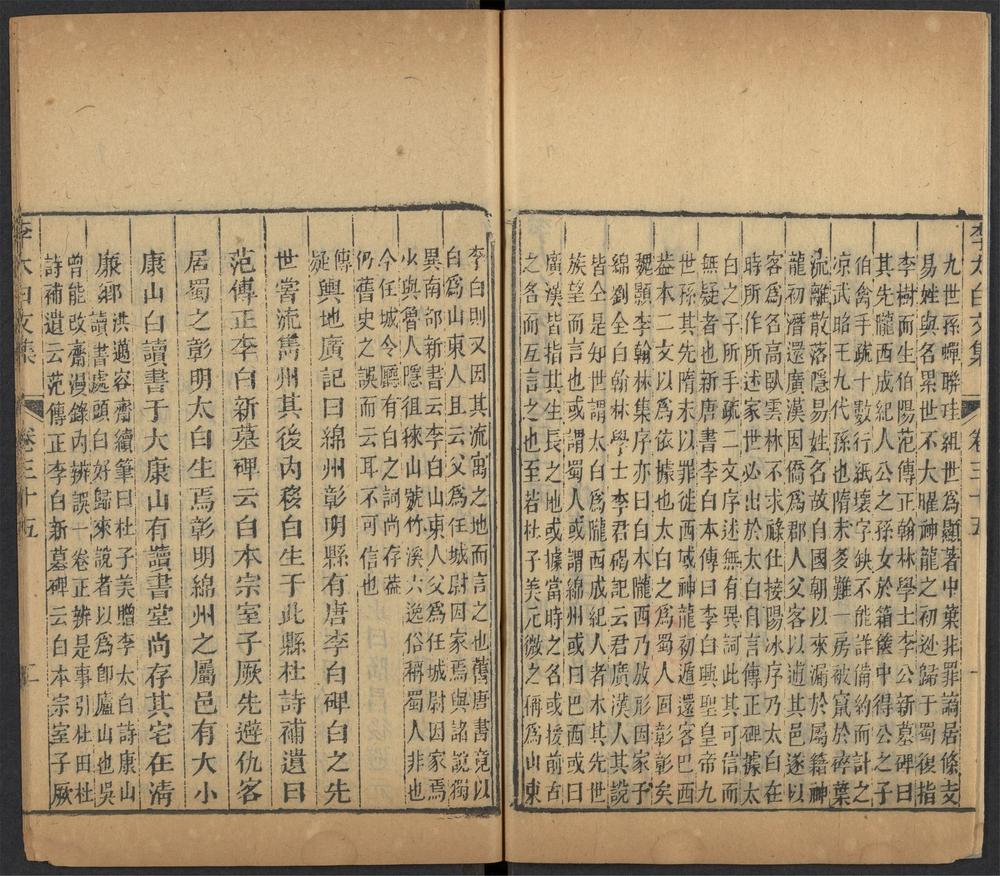 李太白文集 卷三十五 一
九世孫蟬聯珪組世爲顯著中葉非罪謫居條支
易姓與名累世不大曜神龍之初逃歸于蜀復指
李樹而生伯陽范傳正翰林學士李公新墓碑曰
其先隴西成紀人公之孫女於箱篋中得公之子
伯禽手疏十數行紙壞字缺不能詳備約而計之
涼武昭王九代孫也隋末多難一房被竄於碎葉
流離散落隱易姓名故自國朝以來漏於屬籍神
龍初潛還廣漢因僑爲郡人父客以逋其邑遂以
客爲名高臥雲林不求祿仕接陽冰序乃太白在
時所作所述家世必出於太白自言傳正碑據太
白之子所手疏二文序述無有異詞此其可信而
無疑者也新唐書李白本傳曰李白興聖皇帝九
世孫其先隋末以罪徙西域神龍初遁還客巴西
益本二文以爲依據也太白之爲蜀人固彰彰矣
魏顥李翰林集序亦曰白本隴西乃放形因家于
綿劉全白翰林學士李君碣記云君廣漢人其說
皆仝是知世謂太白爲隴西成紀人者本其先世
族望而言也或謂蜀人或謂綿州或曰巴西或曰
廣漢皆指其生長之地或據當時之名或援前古
之名而互言之也至若杜子美元微之稱爲山東
李白則又因其流寓之地而言之也舊唐書竟以
白爲山東人且云父爲任城尉因家焉與諸說獨
異南部新書云李白山東人父爲任城尉因家焉
少與魯人隱徂徠山號竹溪六逸俗稱蜀人非也
今任城令廳有白之詞尚存葢
仍舊史之誤而云耳不可信也
傳疑輿地廣記曰綿州彰明縣有唐李白碑白之先
世嘗流雋州其後內移白生于此縣杜詩補遺曰
范傳正李白新墓碑云白本宗室子厥先避仇客
居蜀之彰明太白生焉彰明綿州之屬邑有大小
康山白讀書于大康山有讀書堂尚存其宅在清
廉鄉 洪邁容齋續筆曰杜子美贈李太白詩康山
讀書處頭白好歸來說者以爲卽廬山也吳
曾能改齋漫錄內辨誤一卷正辨是事引杜田杜
詩補遺云范傳正李白新墓碑云白本宗室子厥
李太白文集 卷三十五